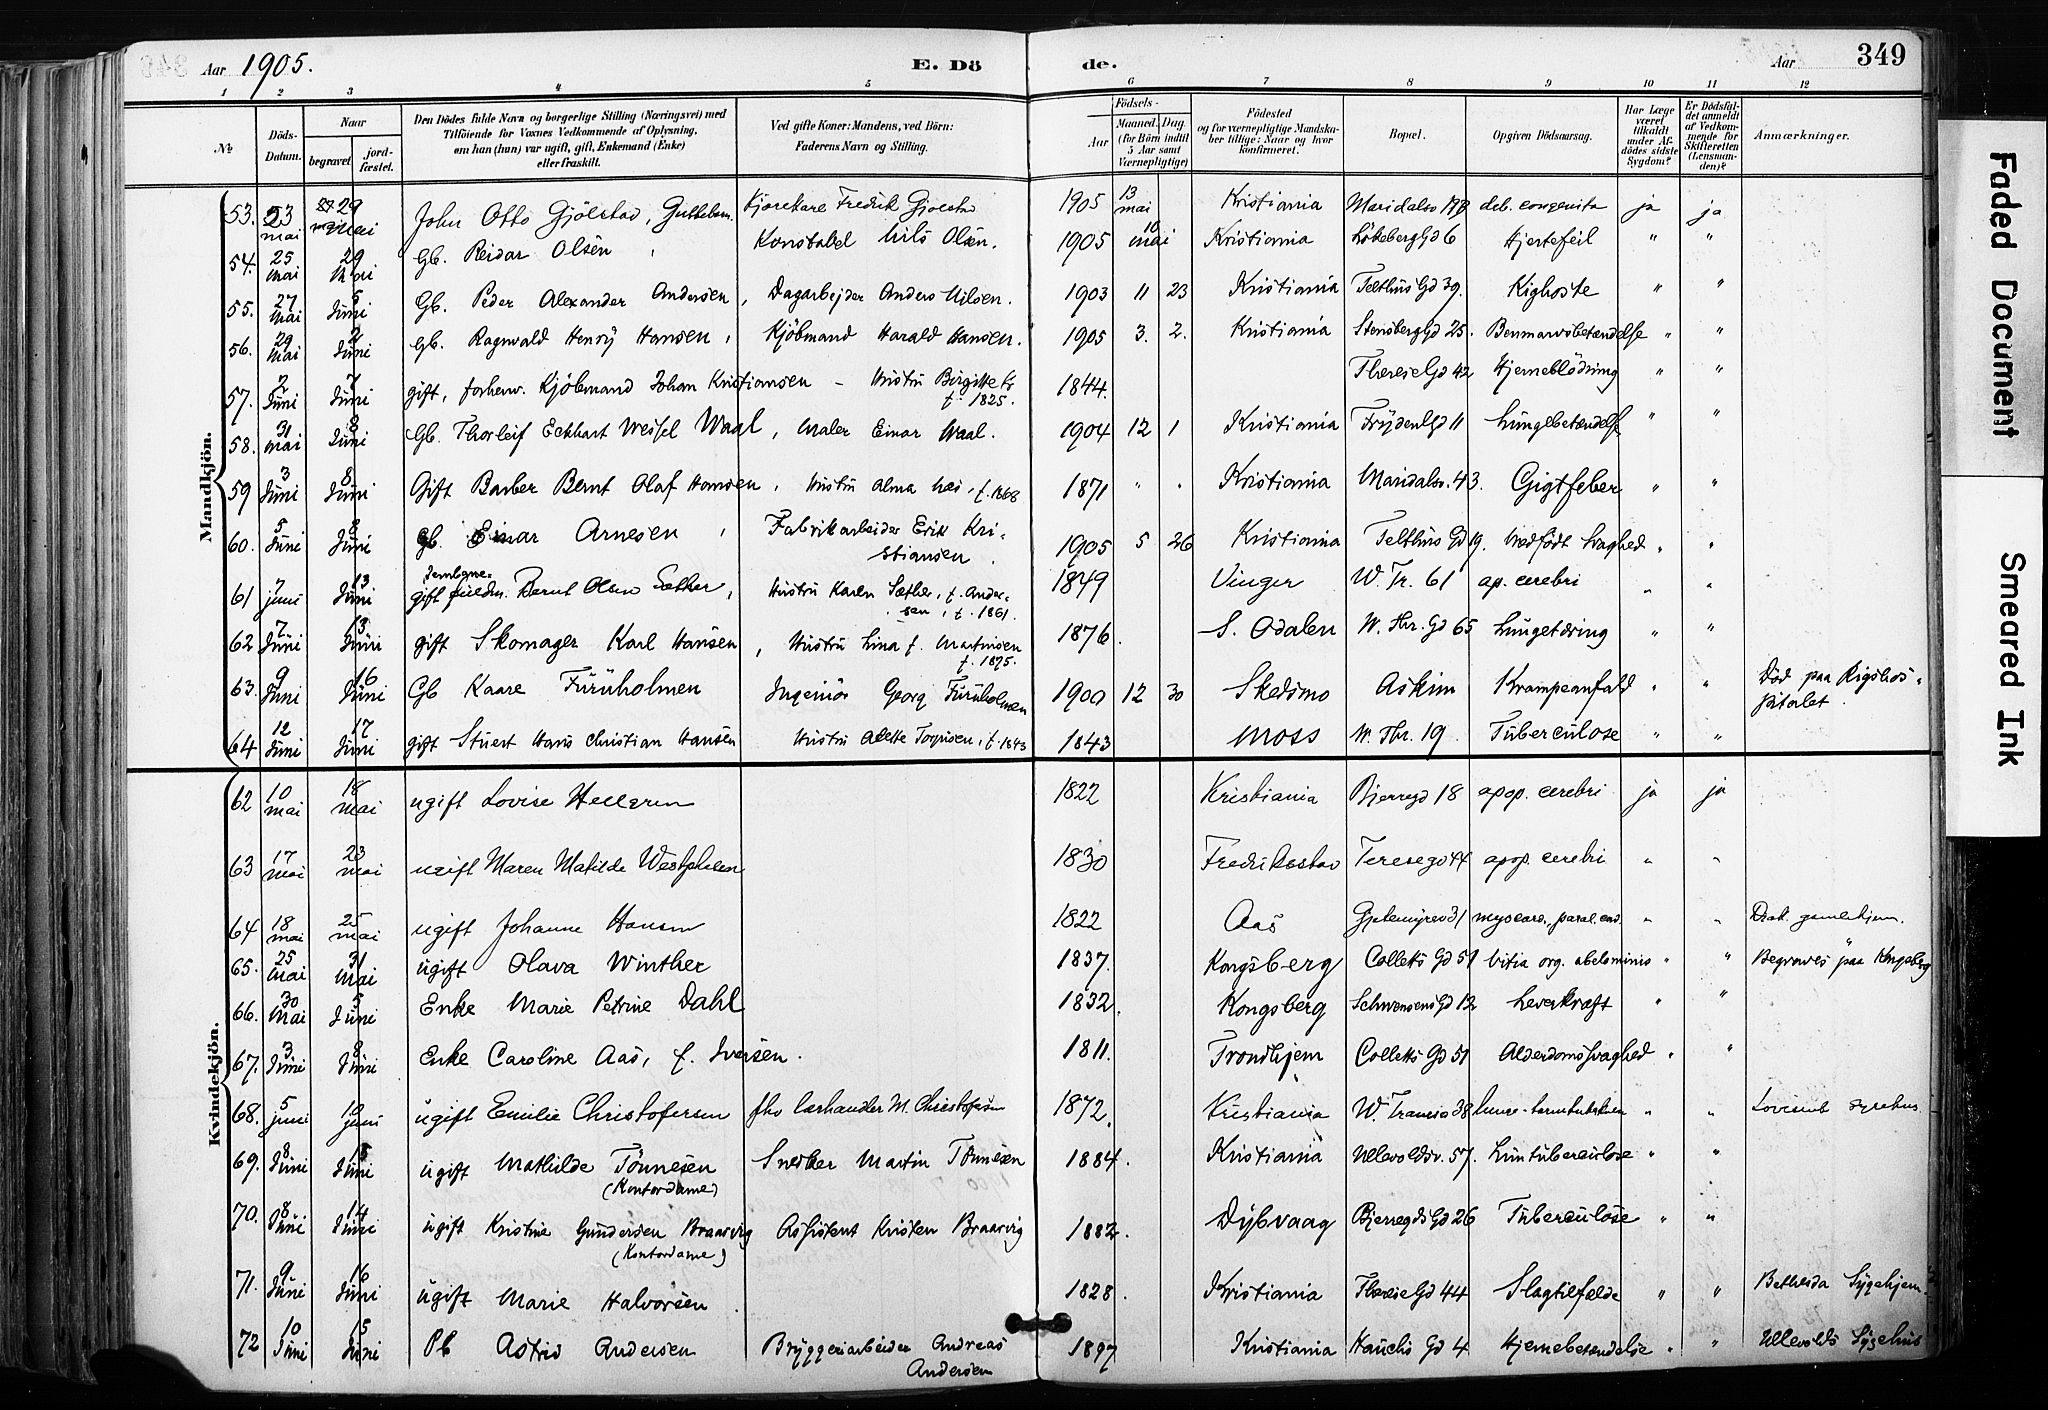 349
Aar 1905.
E. Dö
de.
Aar
1 2 3 4 5 6 7 8 9 10 11 12
№
Döds-Datum.
Naar
begravet
jord-fæstet.
Den Dödes fulde Navn og borgerlige Stilling (Næringsvei) med
Tilföiende for Voxnes Vedkommende af Oplysning,
om han (hun) var ugift, gift, Enkemand (Enke)
eller fraskilt.
Ved gifte Koner: Mandens, ved Börn:
Faderens Navn og Stilling.
Födsels-
Aar
Maaned. Dag.
(for Börn indtil
5 Aar samt
Værnepligtige)
Födested
og for værnepligtige Mandska-
ber tillige: Naar og hvor
konfirmeret.
Bopæl.
Opgiven Dödsaarsag.
Har Læge
været
tilkaldt
under Af-
dödes sidste
Sygdom?
Er Dödsfal-
det anmeldt
af Vedkom-
mende for
Skifteretten
(Lensman-
den)?
Anmærkninger.
Mandkjön.
53. 23 mai 29 mai John Otto Gjölstad, Guttebarn. Kjørekarl Fredrik Gjølstad 1905 13 mai Kristiania Maridalsv deb. congenita ja ja
54. 25 mai 29 Mai Gb. Reidar Olsen, Konstabel Nils Olsen. 1905 10 mai Kristiania Lökeberg Gd 6 Hjertefeil " "
55. 27 Mai 5 Juni Gb. Peder Alexander Andersen, Dagarbejder Anders Nilsen. 1903 11 23 Kristiania Telthus Gd 39. Kighoste " "
56. 29 Mai 2 Juni Gb. Ragnvald Henry Hansen, Kjöbmand Harald Hansen. 1905 3. 2. Kristiania Stensberg Gd 25. Benmarvsbetændelse " "
57. 2 Juni 7 Juni gift, forhenv. Kjöbmand Johan Kristiansen - Hustru Birgitte Kr f. 1825. 1844. Therese Gd 42 Hjerneblödning " "
58. 31 mai 8 Juni Gb. Thorleif Eckhart Wessel Waal, Maler Einar Waal. 1904 12 1 Kristiania Fryden Gd 11 Lungebetændelse " "
59 3 Juni 8 Juni Gift Barber Bernt Olaf Hansen, Hustru Alma , f. 1868 1871 " " Kristiania Maridalsv. 43. Gigtfeber " "
60. 5 Juni 8 Juni Gb. Einar Arnesen, Fabrikarbeider Erik Kri-
stiansen. 1905 5 26 Kristiania Telthus Gd 19. Medfödt Svaghed " "
61 7 juni 13 Juni gift Bernt Olsen Sæther, Hustru Karen Sæther, f. Ander-
sen, f. 1861. 1849 Vinger W. Tr. 61 ap. cerebri " "
62 7 Juni 13 Juni gift Skomager Karl Hansen, Hustru Lina f. Martinsen
f. 1875. 1876. S. Odalen W. Thr. Gd 65 Lungetæring " "
63. 9 Juni 16 Juni Gb Kaare Furuholmen Ingeniör Georg Furuholmen 1900 12 30 Skedsmo Askim Krampeanfald " " Död paa Rigshos-
pitalet.
64 12 Juni 17 Juni gift Stuert Hans Christian Hansen Hustru Alette Torgusen, f. 1843 1843 Moss W. Thr. 19. Tuberculose " "
Kvindekjön.
62 10 mai 18 mai ugift Lovise Hellgren 1822 Kristiania Bjerregd 18 apop. cerebri ja ja
63 17 mai 23 mai ugift Maren Matilde Westphalen 1830 Fredriksstad Teresegd 44 apop. cerebri " "
64 18 mai 25 mai ugift Johanne Hansen 1822 Aas Gjetemyrsv 31 myocard., paral. cord. " " Diak. gamlehjem.
65. 25 Mai 31 Mai ugift Olava Winther 1837. Kongsberg Colletts Gd 51 Vitia org. abdominis " " Begraves paa Kongsberg
66. 30 Mai 5 Juni Enke Marie Petrine Dahl 1832. Kongsberg Schwensens Gd 12 Leverkræft " "
67. 3 Juni 8 Juni Enke Caroline Aas, f. Iversen. 1811. Trondhjem Colletts Gd 51 Alderdomssvaghed " "
68. 5 juni 10 juni ugift Emilie Christofersen fhv lærhandler M. Christofersen 1872. Kristiania W. Tranesgd 38 " " Lovisenb sygehus
69. 8 Juni 15 Juni ugift Mathilde Tönnesen
(Kontordame) Snedker Martin Tönnesen 1884. Kristiania Ullevoldsv. 57. Lungtuberculose " "
70. 8 Juni 14 Juni ugift Kristine Gundersen Braarvig
(Kontordame) Assistent Kristen Braarvig 1882. Dybvaag Bjerregds Gd 26 Tuberculose " "
71. 9 Juni 16 Juni ugift Marie Halvorsen. 1828. Kristiania Therese Gd 44 Slagtilfælde " " Bethesda Sygehjem.
72 10 Juni 15 Juni Pb Astrid Andersen Bryggeriarbeider Andreas
Andersen 1897 Kristiania Hauchs Gd 4 Hjernebetændelse " " Ullevolds Sygehus
Faded Document
Smeared Ink